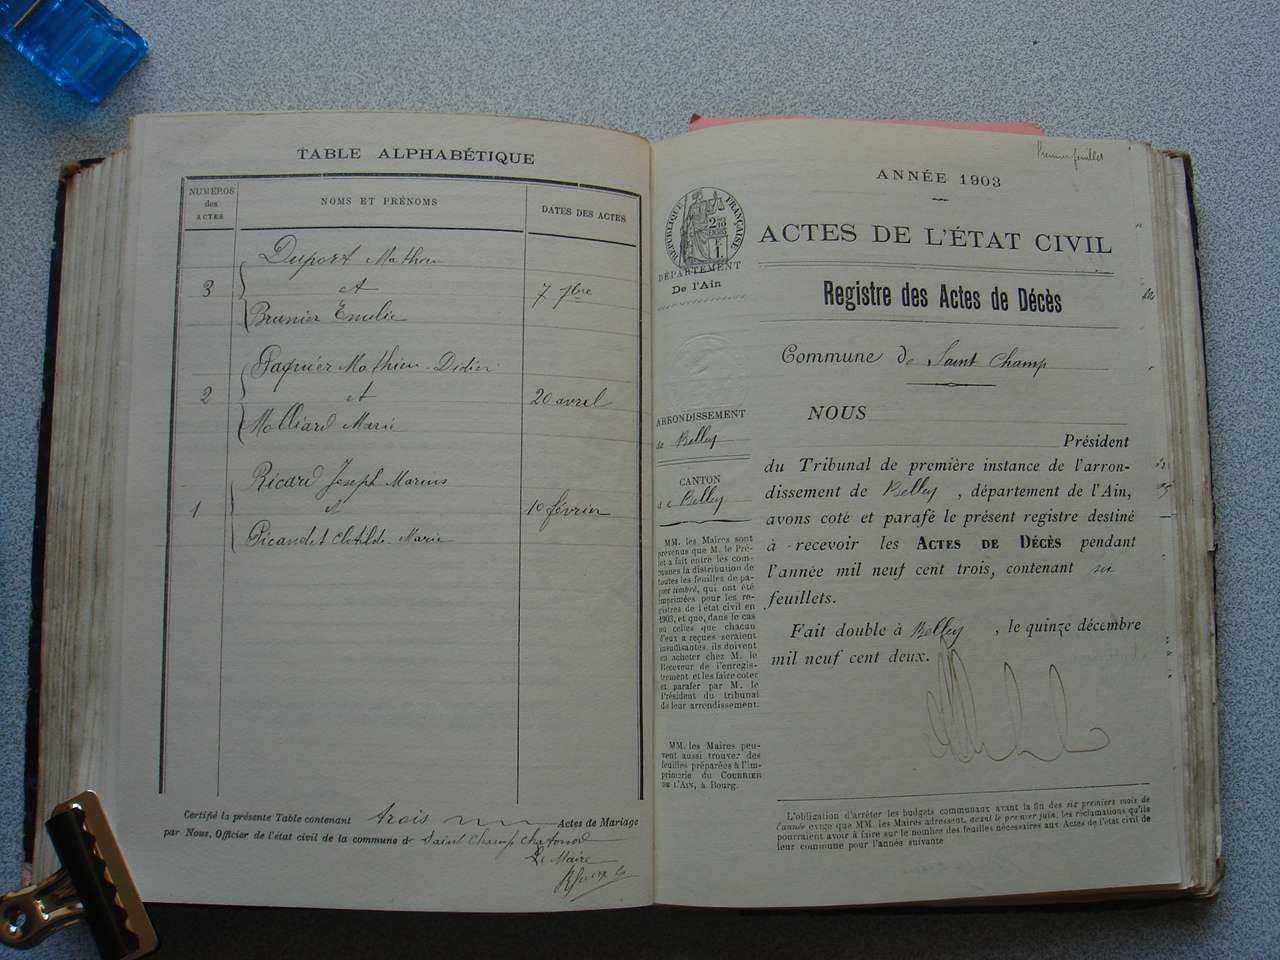 TABLE ALPHABÉTIQUE
NUMÉROS
des
ACTES
NOMS ET PRÉNOMS
DATES DES ACTES
Duport Mathieu
3
et
7 7bre
Brunier Émelie
Fagnier Mathieu Didier
2
et
20 avril
Molliard Marie
Ricard Joseph Marius
1
et
10 février
Picandet Clotilde Marie
Certifié la présente Table contenant trois Actes de Mariage
par Nous, Officier de l'état civil de la commune de Saint Champ Chatonod
Le Maire
Premier feuillet
ANNÉE 1903
RÉPUBLIQUE FRANÇAISE
DÉPARTEMENT
De l'Ain
ACTES DE L'ÉTAT CIVIL
Registre des Actes de Décès
Commune de Saint Champ
ARRONDISSEMENT
de Belley
CANTON
de Belley
MM. les Maires sont
prévenus que M. le Pré-
fet a fait entre les com-
munes la distribution de
toutes les feuilles de pa-
pier timbré, qui ont été
imprimées pour les re-
gistres de l'état civil en
1903, et que, dans le cas
où celles que chacun
d'eux a reçues seraient
insuffisantes, ils doivent
en acheter chez M. le
Receveur de l'enregis-
trement et les faire coter
et parafer par M. le
Président du tribunal
de leur arrondissement.
MM. les Maires peu-
vent aussi trouver des
feuilles préparées à l'im-
primerie du COURRIER
DE L'AIN, à Bourg.
NOUS
Président
du Tribunal de première instance de l'arron-
dissement de Belley, département de l'Ain,
avons coté et parafé le présent registre destiné
à recevoir les ACTES DE DÉCÈS pendant
l'année mil neuf cent trois, contenant six
feuillets.
Fait double à Belley, le quinze décembre
mil neuf cent deux.
L'obligation d'arrêter les budgets communaux avant la fin des six premiers mois de
l'année exige que MM. les Maires adressent, avant le premier juin, les réclamations qu'ils
pourraient avoir à faire sur le nombre des feuilles nécessaires aux Actes de l'état civil de
leur commune pour l'année suivante